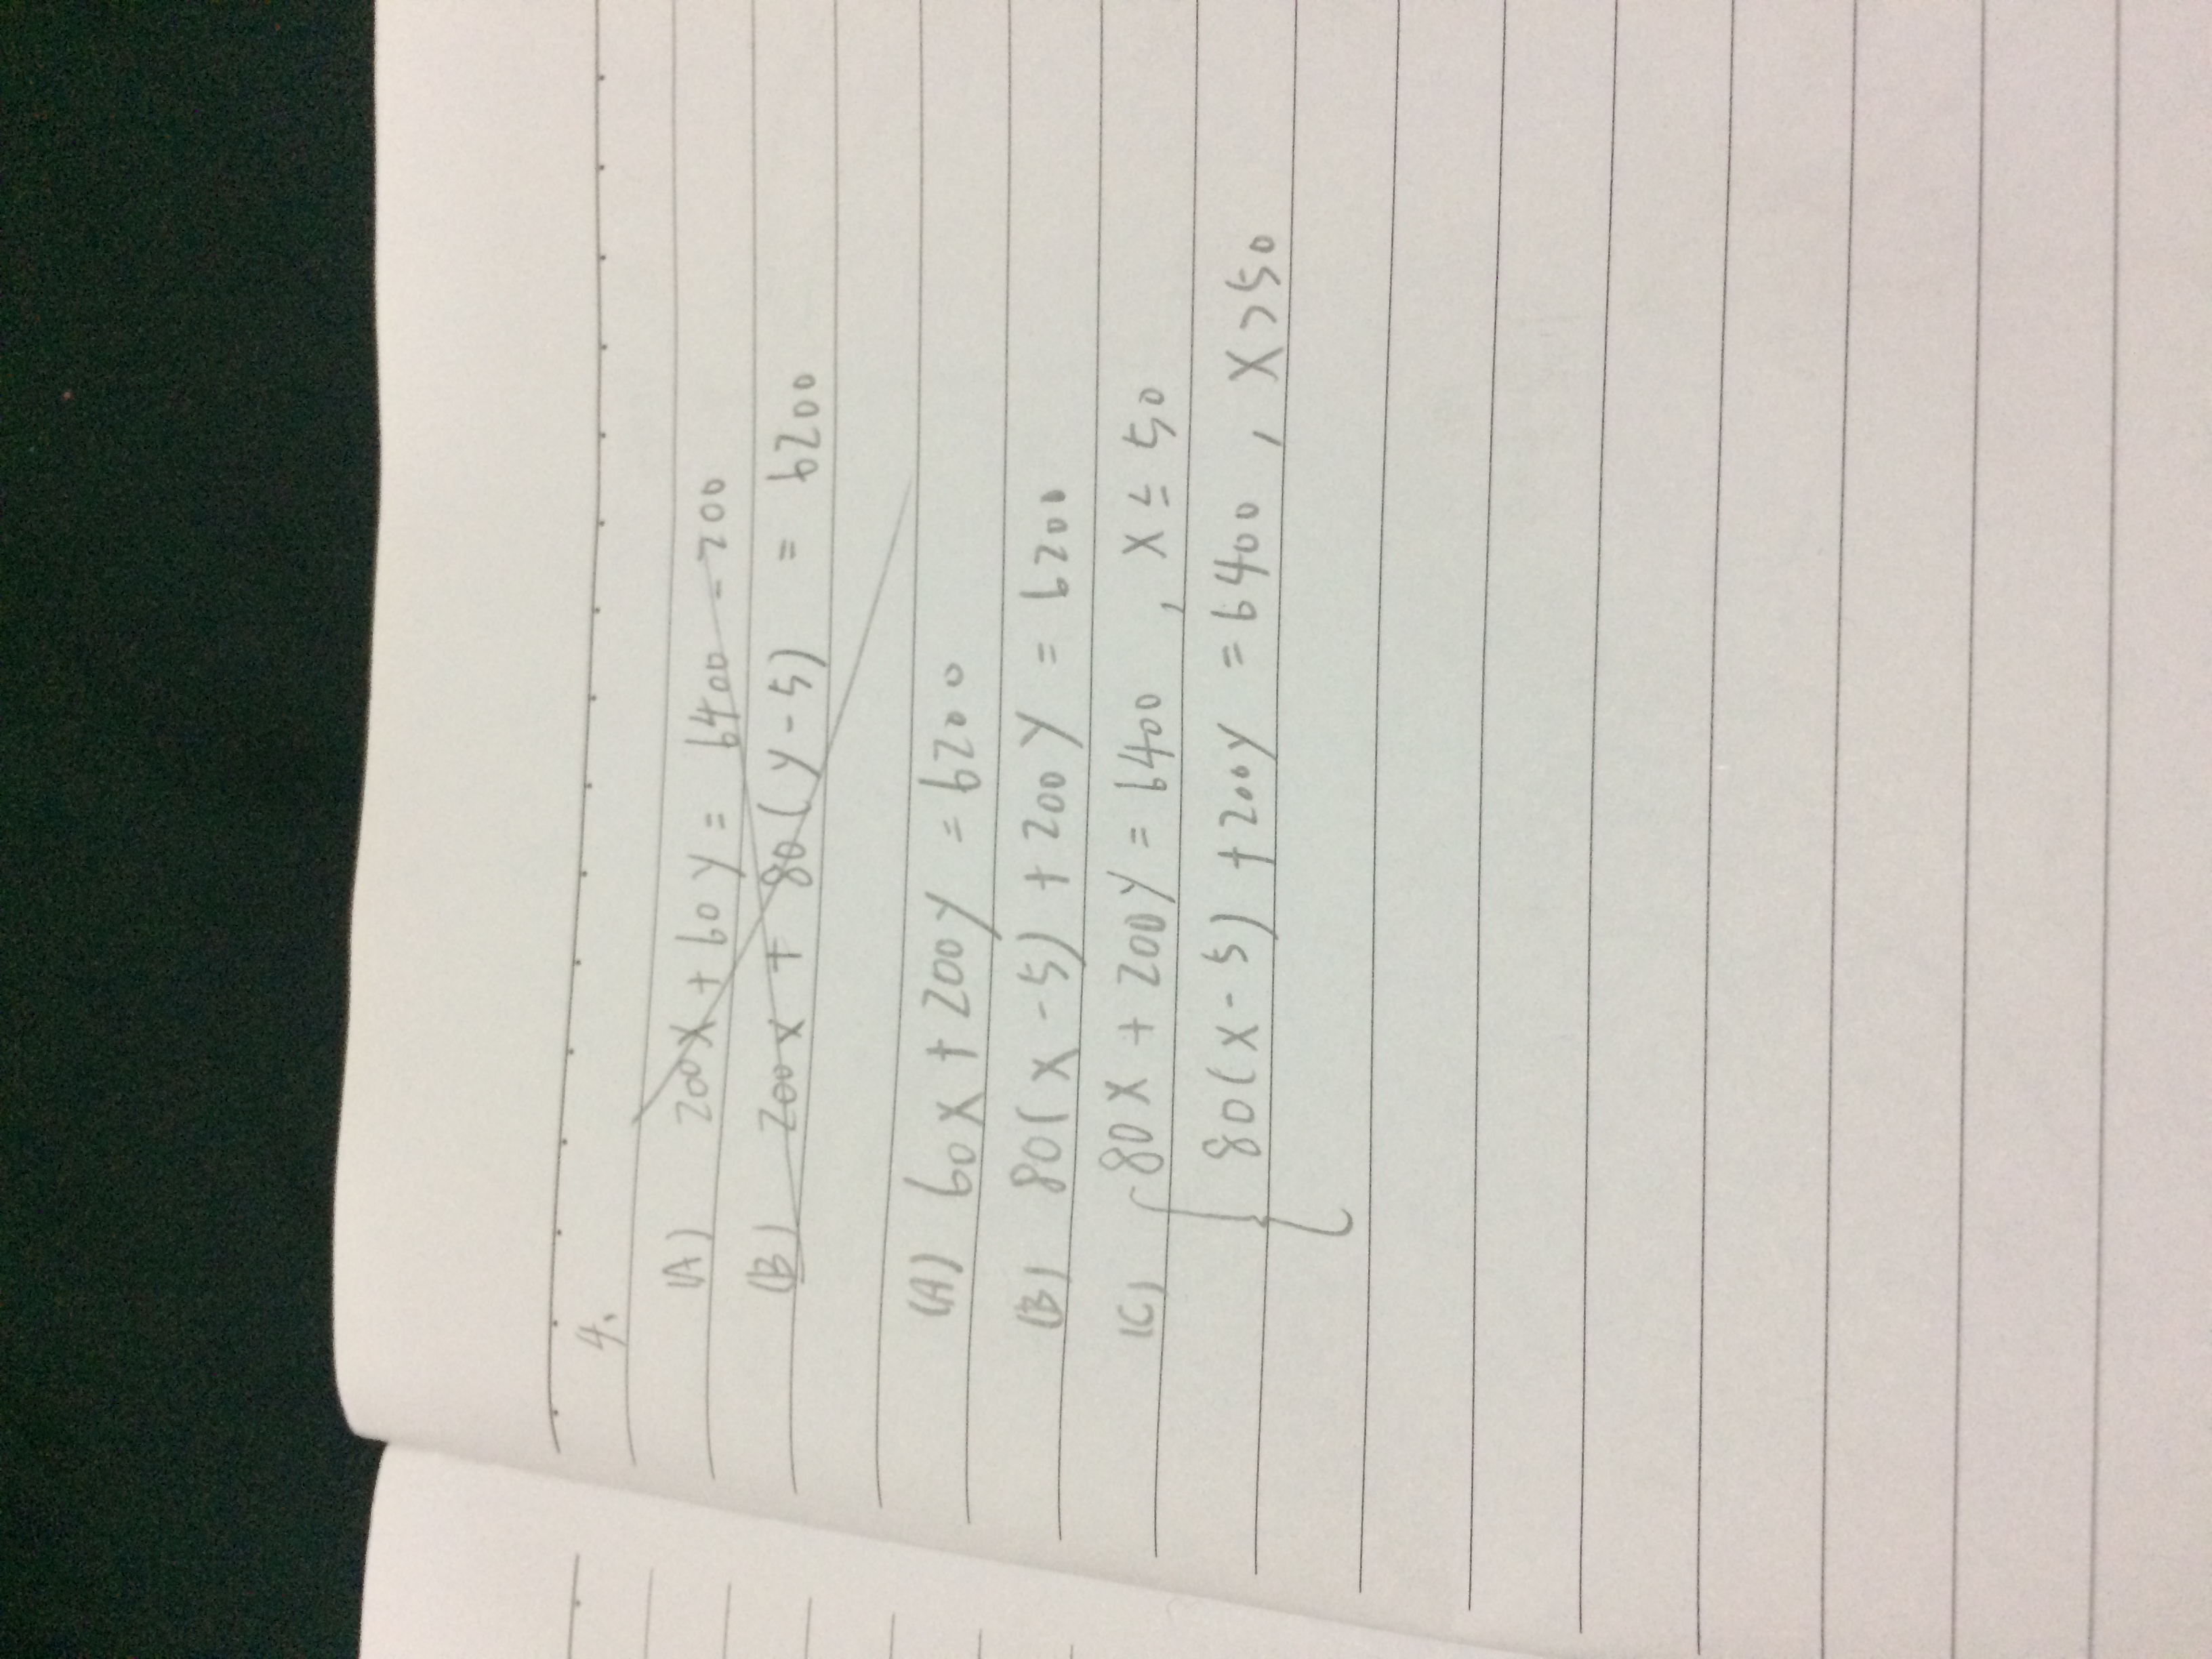 4.
(A) 200x + 60y = 6400 - 200
(B) 200x + 80(y-5) = 6200
(A) 60x + 200y = 6200
(B) 80(x-5) + 200y = 6200
(C) { 80x + 200y = 6400 , x ≤ 50
80(x-5) + 200y = 6400 , x > 50